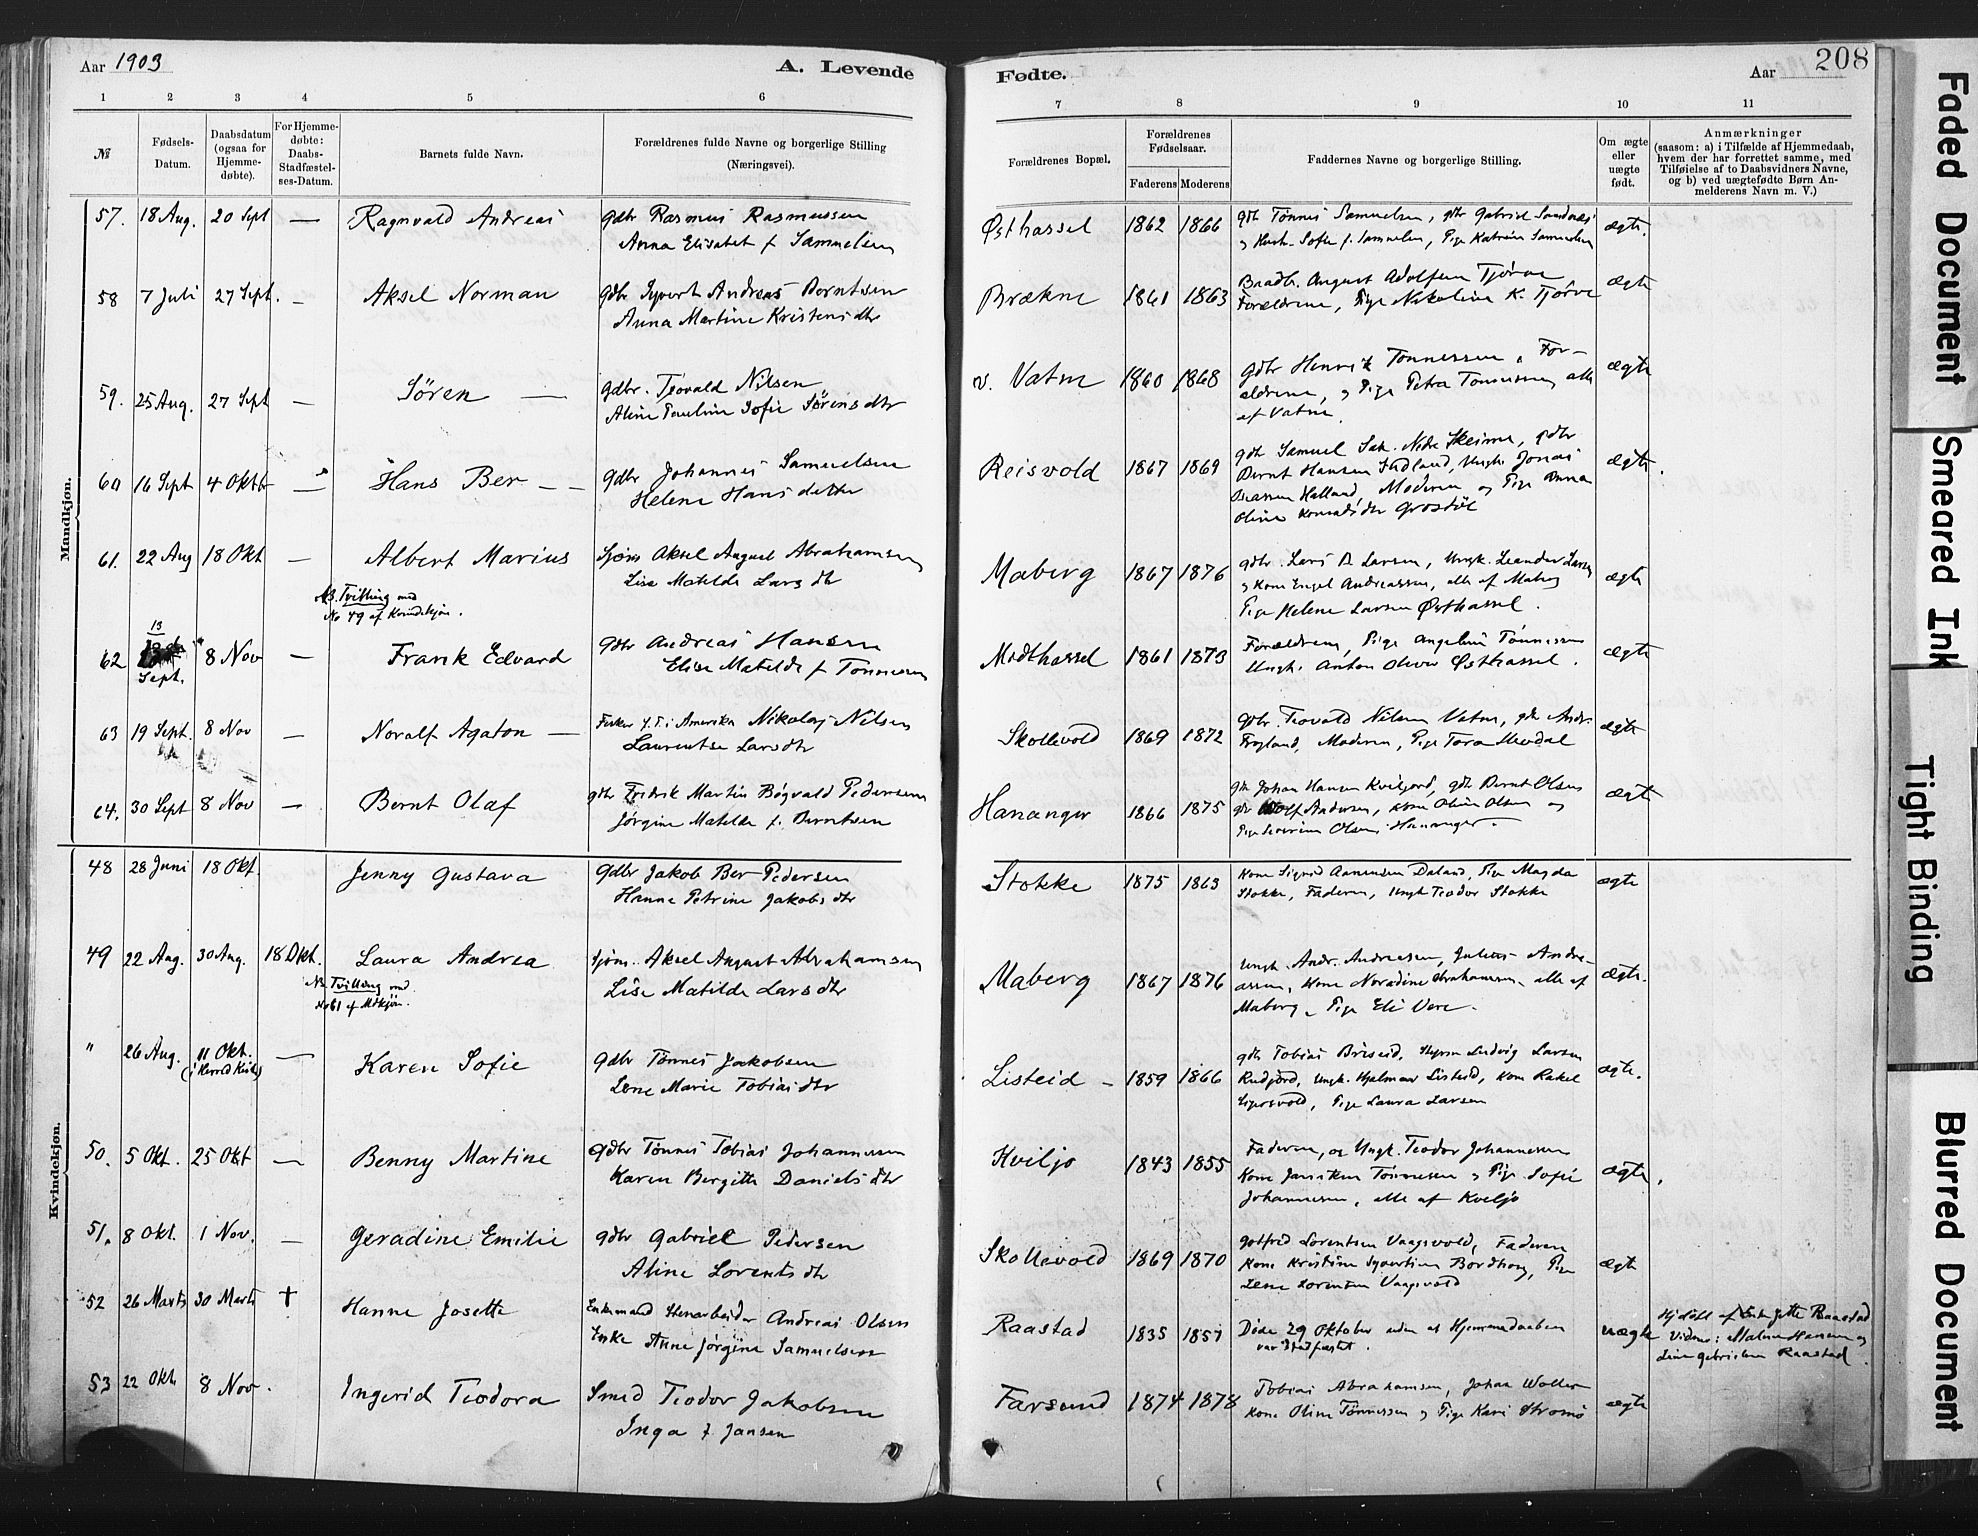 Aar 1903
A. Levende
Fødte.
Aar
208
1 2 3 4 5 6 7 8 9 10 11
№
Fødsels-
Datum.
Daabsdatum
(ogsaa for
Hjemme-
døbte).
For Hjemme-
døbte:
Daabs-
Stadfæstel-
ses-Datum.
Barnets fulde Navn.
Forældrenes fulde Navne og borgerlige Stilling
(Næringsvei).
Forældrenes Bopæl.
Forældrenes
Fødselsaar.
Faderens Moderens
Faddernes Navne og borgerlige Stilling.
Om ægte
eller
uægte
født.
Anmærkninger
(saasom: a) i Tilfælde af Hjemmedaab,
hvem der har forrettet samme, med
Tilføielse af to Daabsvidners Navne,
og b) ved uægtefødte Børn An-
melderens Navn m. V.)
Mandkjøn.
57. 18 Aug. 20 Sept — Ragnvald Andreas
gdbr Rasmus Rasmussen
Anna Elisabet f. Samuelsen
Østhassel 1862 1866
gdb Tønnes Samuelsen, gdbr Gabriel Sandnes
og Hustr. Sofie f. Samuelsen, Pige Katrine Samuelsen
ægte.
58 7 Juli 27 Sept. — Aksel Norman
gdbr Syvert Andreas Berntsen
Anna Martine Kristensdtr
Brækne 1861 1863
August Adolfsen Tjørve
Forældrene, Pige Nikoline K. Tjørve
ægte
59. 25 Aug. 27 Sept — Søren —
gdbr. Teovald Nilsen
Aline Pauline Sofie Sørensdtr
v. Vatne 1860 1868
gdbr Henrik Tønnessen, For-
ældrene, og Pige Petra Tønnessen, alle
af Vatne.
ægte
60 16 Sept 4 Oktb — Hans Ber — —
gdbr Johannes Samuelsen
Helene Hansdatter
Reisvold 1867 1869
gdb Samuel Sak. Nedre Skeime, gdbr
Bernt Hansen Stadland, Ungk. Jonas
Halland, Moderen og Pige Anna
Oline Konradsdtr Grostøl
ægte.
61. 22 Aug 18 Okt — Albert Marius
NB. Tvilling med
No 49 af Kvindekjøn.
Sjøm Aksel August Abrahamsen
Lise Matilde Larsdtr
Maberg 1867 1876
gdbr. Lars B. Larsen, Ungk. Leander Larsen
og Kone Engel Andreassen, alle af Maberg
Pige Helene Larsen Østhassel.
ægte
62 13 Sept. 8 Nov — Frank Edvard
gdbr Andreas Hansen
Elise Matilde f. Tønnessen
Midthassel 1861 1873
Forældrene, Pige Angeline Tønnessen
Ungk. Anton Oliver Østhassel.
ægte
63 19 Sept. 8 Nov — Noralf Agaton —
Fisker f.T. i Amerika Nikolaj Nilsen
Laurentse Larsdtr
Skollevold 1869 1872
gdbr. Teovald Nilsen Vatne, gdb Andr.
Frøyland, Moderen, Pige Tora
ægte
64. 30 Sept 8 Nov — Bernt Olaf
gdbr Fredrik Martin Bøgvald Pedersen
Jørgine Matilde f. Berntsen
Hananger 1866 1875
gdb Johan Hansen Kviljord, gdb Bernt Olsen
gdb Andersen, Kone Oline Olsen og
Pige Severine Olsen, Hananger.
ægte
Kvindekjøn.
48 28 Juni 18 Okt. Jenny Gustava
gdbr Jakob Ber Pedersen
Hanne Petrine Jakobsdtr
Stokke 1875 1863
Kone Sigrid Aanensen Daland, Pige Magda
Stokke, Faderen, Ungk Teodor Stokke
ægte
49 22 Aug. 30 Aug. 18 Okt. Laura Andrea
NB. Tvilling med
No 61 af Mdkjøn.
Sjøm. Aksel August Abrahamsen
Lise Matilde Larsdtr
Maberg 1867 1876
Ungk. Andr. Andreassen, Julius Andre-
assen, Kone Noradine Abrahamsen, alle af
Maberg, Pige Eli Vere.
ægte.
" 26 Aug. 11 Okt. — Karen Sofie
(i Herred Kirke)
gdbr Tønnes Jakobsen
Lene Marie Tobiasdtr
Listeid — 1859 1866
gdb Tobias Briseid, Styrm Ludvig Larsen
Rudjord, Ungk. Hjalmar Listeid, Kone Rakel
Sigersvold, Pige Laura Larsen
ægte.
50. 5 Okt. 25 Okt — Benny Martine
gdbr Tønnes Tobias Johannesen
Karen Bergitte Danielsdtr
Kviljo 1843 1855
Faderen, og Ungk. Teodor Johannessen
Kone Jansken Tønnesen og Pige Sofie
Johannesen, alle af Kviljo
ægte.
51. 8 Okt. 1 Nov. — Geradine Emilie
gdbr Gabriel Pedersen
Aline Lorentsdtr
Skollevold 1869 1870
Gotfred Lorentsen Vaagsvold, Faderen
Kone Kristine Syvertsen Bordhoug, Pige
Lene Lorentsen Vaagsvold
ægte
52 26 Marts 30 Marts † Hanne Josette
Enkemand Stenarbeider Andreas Olsen
Enke Anne Jørgine Samuelsen
Raastad 1835 1857
Døde 29 Oktober uden at Hjemmedaaben
var Stadfæstet.
uægte
Hjdøbt af Enke Jette Raastad
Vidner: Malene Hansen og
Line Gabrielsen Raastad.
53 22 Okt. 8 Nov. Ingerid Teodora
Smed Teodor Jakobsen
Inga f. Jansen
Farsund 1874 1878
Tobias Abrahamsen, Johan Wolter
Kone Oline Tønnessen og Pige Kari Strømø
ægte
Faded Document
Smeared Ink
Tight Binding
Blurred Document